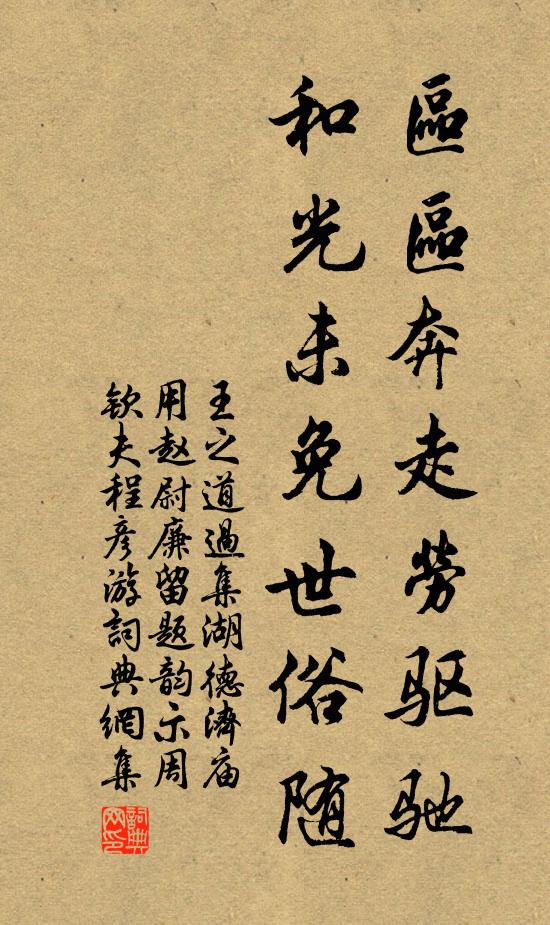 區區奔走勞驱驰
和光未免世俗随
王之道過集湖德濟庙
用赵尉廉留题韵示周
钦夫程彦游詞典網集
詞典
网印